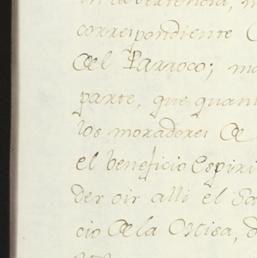 correspondiente
del Parroco; m
parte, que quan
los moradores de
el beneficio Espiri
der oir alli el Sa
cio de la Misa, d